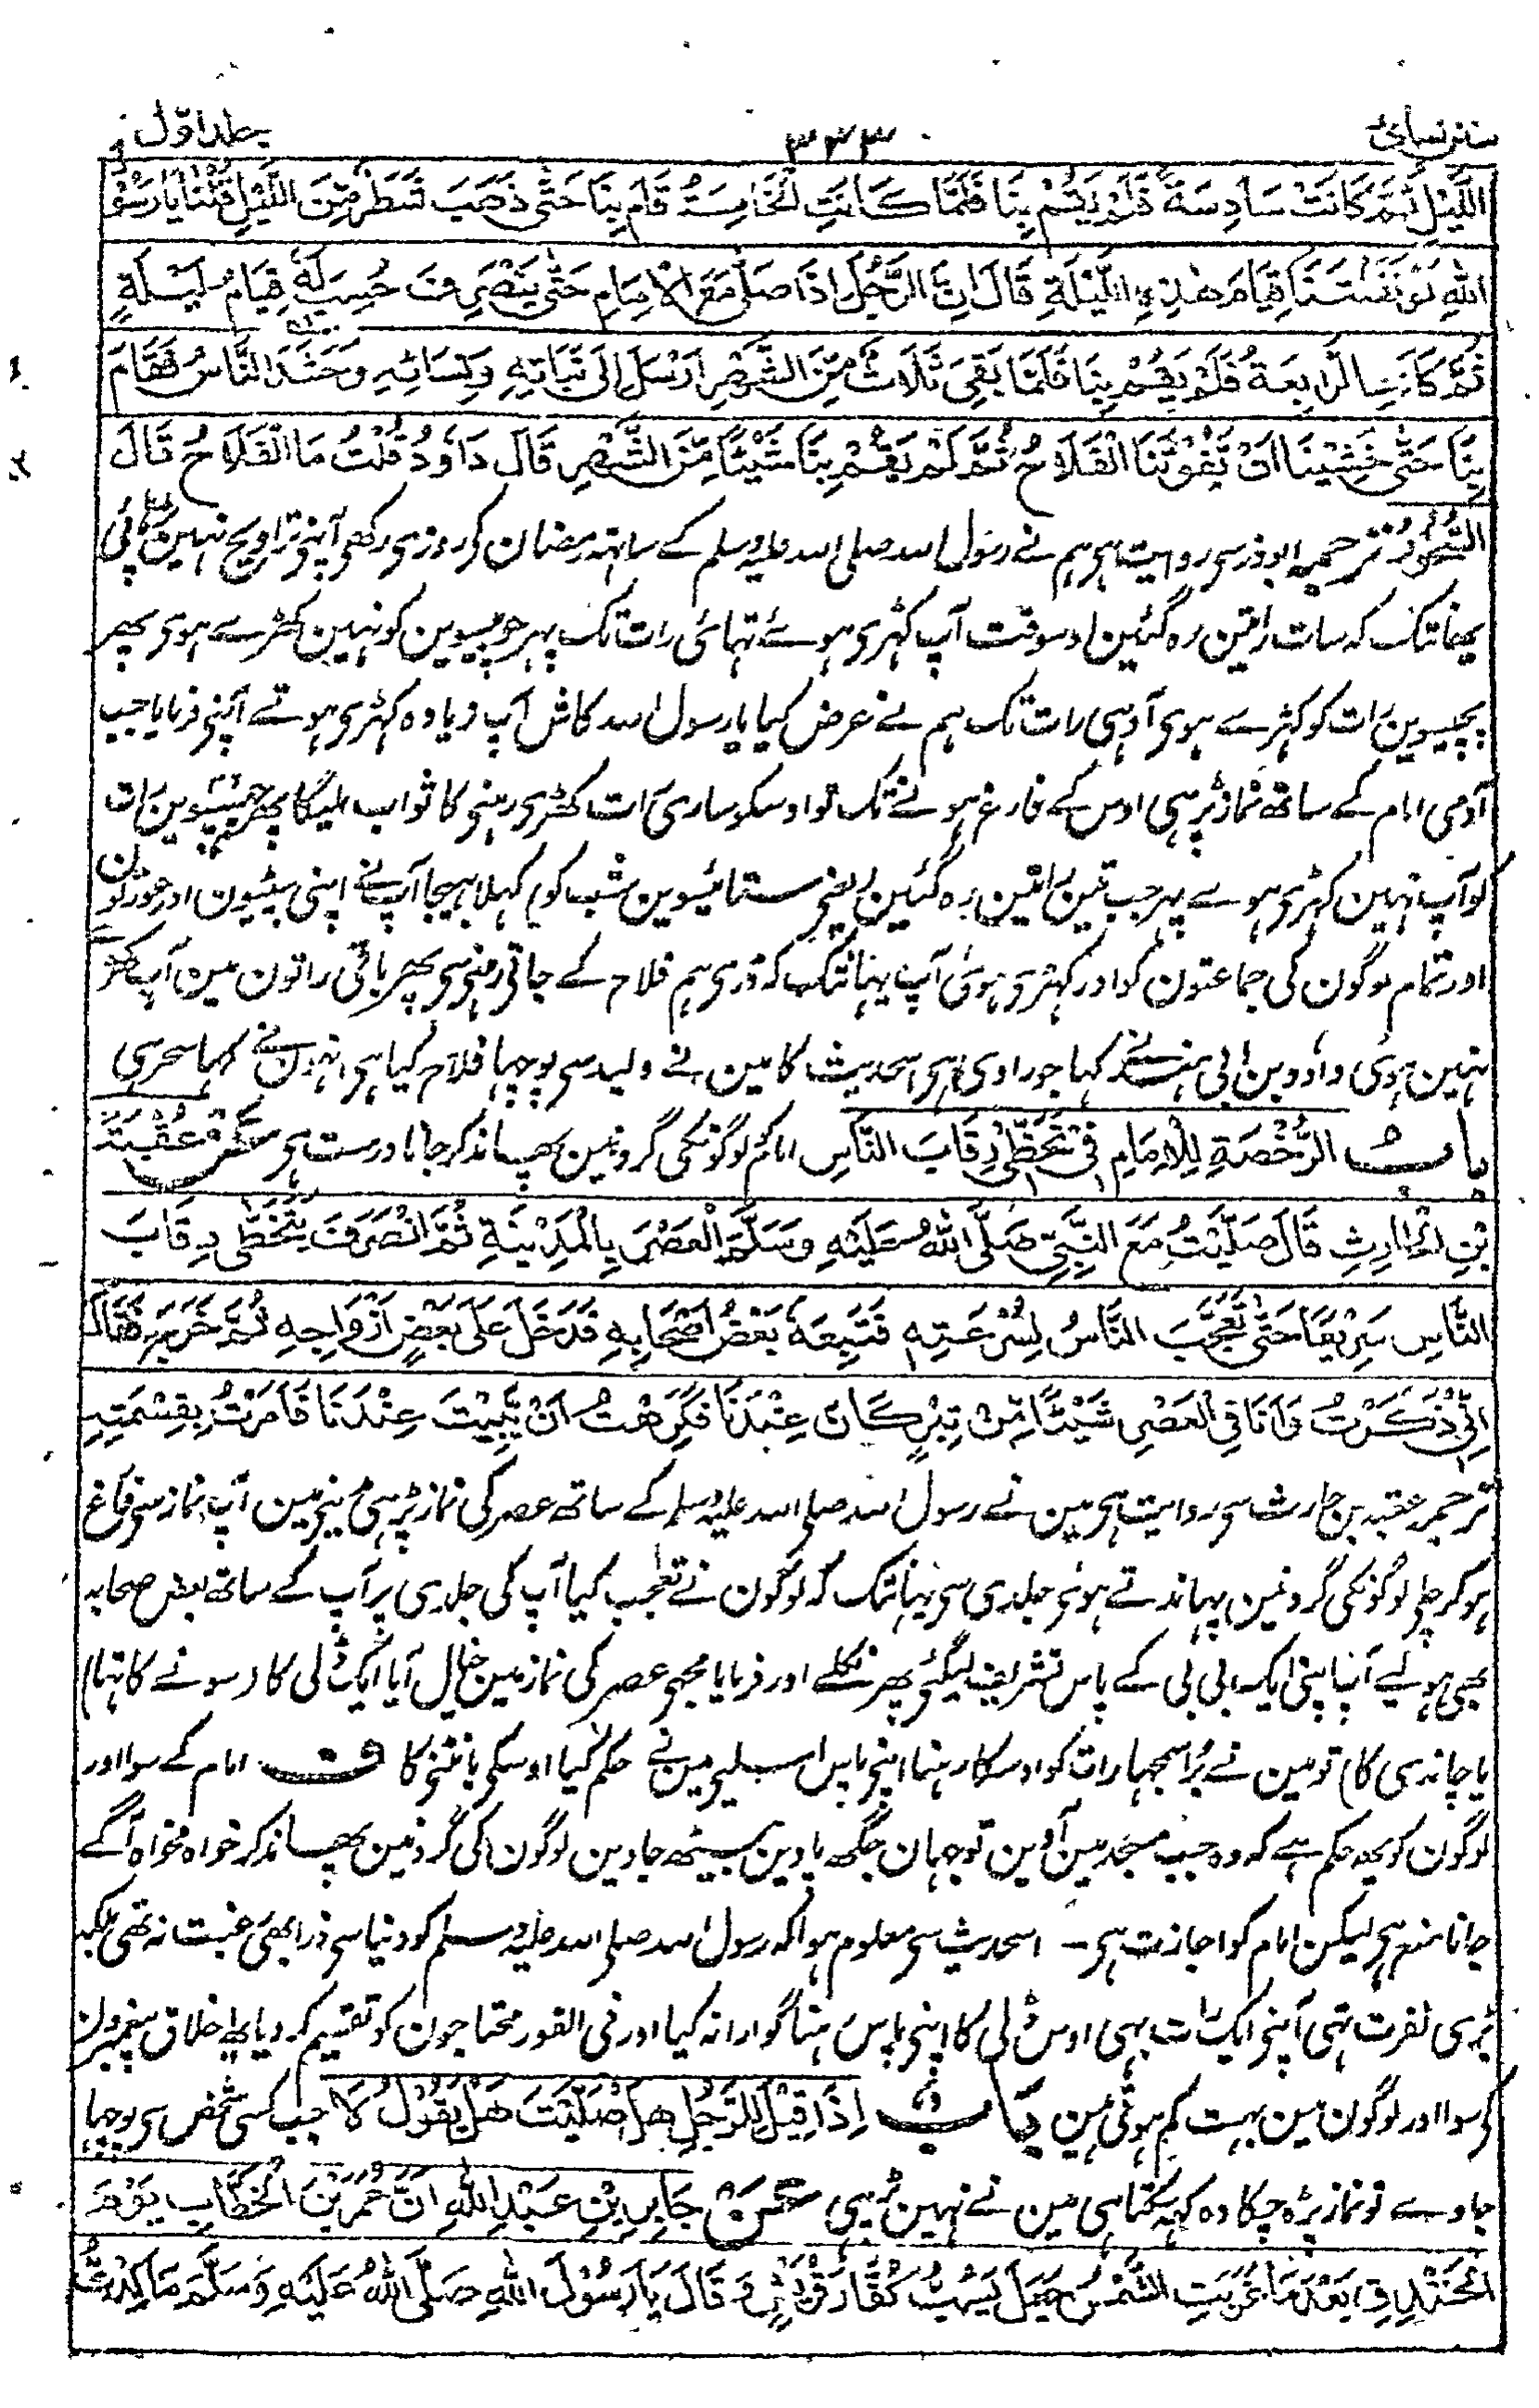 سنن نسائی ۳۳۳ جلد اوّل
اللَّيْلِ ثُمَّ كَانَتْ سَادِسَةٌ فَلَمْ يَقُمْ بِنَا فَلَمَّا كَانَتِ الْخَامِسَةُ قَامَ بِنَا حَتّٰى ذَهَبَ شَطْرٌ مِّنَ اللَّيْلِ قُلْنَا يَا رَسُوْ
اللّٰهِ لَوْ نَفَّلْتَنَا قِيَامَ هٰذِهِ اللَّيْلَةِ قَالَ اِنَّ الرَّجُلَ اِذَا صَلّٰى مَعَ الْاِمَامِ حَتّٰى يَنْصَرِفَ حُسِبَ لَهٗ قِيَامُ لَيْلَةٍ
ثُمَّ كَانَتِ الرَّابِعَةُ فَلَمْ يَقُمْ بِنَا فَلَمَّا بَقِىَ ثَلَاثٌ مِّنَ الشَّهْرِ اَرْسَلَ اِلٰى بَنَاتِهٖ وَنِسَائِهٖ وَحَشَدَ النَّاسُ فَقَامَ
بِنَا حَتّٰى خَشِيْنَا اَنْ يَّفُوْتَنَا الْفَلَاحُ ثُمَّ لَمْ يَقُمْ بِنَا شَيْئًا مِّنَ الشَّهْرِ قَالَ دَاوٗدُ قُلْتُ مَا الْفَلَاحُ قَالَ
السُّحُوْرُ ترجمہ ابوذر سی روایت ہی ہم نے رسول اللہ صلی اللہ علیہ وسلم کے ساتھ رمضان کے روزی رکھی آپنے تراویح نہین پڑہائی
یہانتک کہ سات راتین رہ گئین اوسوقت آپ کھڑی ہوئے تہائی رات تک پہر چوبیسوین کو نہین کھڑے ہوی پھر
پچیسوین رات کو کھڑے ہوی آدہی رات تک ہم نے عرض کیا یا رسول اللہ کاش آپ زیادہ کھڑی ہوتے آپنے فرمایا جب
آدمی امام کے ساتھ نماز پڑہی اوس کے فارغ ہونے تک تو اوسکو ساری رات کھڑی رہنی کا ثواب ملیگا پھر چھبیسوین رات
کو آپ نہین کھڑی ہوے پہر جب تین راتین رہ گئین یعنی ستائیسوین شب کو کہلا بہیجا آپنے اپنی بیٹیون اور عورتون
اور تمام لوگون کی جماعتون کو اور کھڑی ہوئی آپ یہانتک کہ ڈری ہم فلاح کے جاتی رہنی سی پھر باقی راتون مین آپ کھڑے
نہین ہوی داؤد بن ابی ہند نے کہا جو راوی ہی اسحدیث کا مین نے ولید سی پوچہا فلاح کیا ہی انہون نے کہا سحر ہی
باب الرُّخْصَةِ لِلْاِمَامِ فِىْ تَخَطِّىْ رِقَابَ النَّاسِ امام کو لوگونکی گردنین پھاند کر جانا درست ہی عَنْ عُقْبَةَ
بْنِ الْحَارِثِ قَالَ صَلَّيْتُ مَعَ النَّبِيِّ صَلَّى اللّٰهُ عَلَيْهِ وَسَلَّمَ الْعَصْرَ بِالْمَدِيْنَةِ ثُمَّ انْصَرَفَ يَتَخَطّٰى رِقَابَ
النَّاسِ سَرِيْعًا حَتّٰى تَعَجَّبَ النَّاسُ لِسُرْعَتِهٖ فَتَبِعَهٗ بَعْضُ اَصْحَابِهٖ فَدَخَلَ عَلٰى بَعْضِ اَزْوَاجِهٖ ثُمَّ خَرَجَ فَقَالَ
اِنِّىْ ذَكَرْتُ وَاَنَا فِى الْعَصْرِ شَيْئًا مِّنْ تِبْرٍ كَانَ عِنْدَنَا فَكَرِهْتُ اَنْ يَّبِيْتَ عِنْدَنَا فَاَمَرْتُ بِقِسْمَتِهٖ
ترجمہ عقبہ بن حارث سی روایت ہی مین نے رسول اللہ صلی اللہ علیہ وسلم کے ساتھ عصر کی نماز پڑہی مدینے مین آپ نماز سے فارغ
ہو کر چلی لوگونکی گردنین پہاندتے ہوئی جلدی سی یہانتک کہ لوگون نے تعجب کیا آپ کی جلدی پر آپ کے ساتھ بعض صحابہ
بھی ہولیے آپ اپنی ایک بی بی کے پاس تشریف لیگئے پھر نکلے اور فرمایا مجھی عصر کی نماز مین خیال آیا ایک ڈلی کا (سونے کا تہا
یا چاندی کا) تو مین نے بُرا سمجہا رات کو اوسکا رہنا اپنی پاس اسلیے مین نے حکم کیا اوسکی بانٹنی کا ف امام کے سوا اور
لوگون کو یہ حکم ہے کہ وہ جب مسجد مین آوین تو جہان جگھ پاوین بیٹھ جاوین لوگون کی گردنین پھاند کر خواہ مخواہ آگے
جانا منع ہی لیکن امام کو اجازت ہی ۔ اسحدیث سی معلوم ہوا کہ رسول اللہ صلی اللہ علیہ وسلم کو دنیا سی ذرا بھی رغبت نہ تھی بلکہ
بڑی نفرت تہی آپنے ایک رات بہی اوس ڈلی کا اپنی پاس رہنا گوارا نہ کیا اور فی الفور محتاجون کو تقسیم کر دیا یہ اخلاق پیغمبرون
کی سوا اور لوگون مین بہت کم ہوتی ہین بَابٌ اِذَا قِيْلَ لِلرَّجُلِ هَلْ صَلَّيْتَ هَلْ يَقُوْلُ لَا جب کسی شخص سی پوچہا
جاوے تو نماز پڑہ چکا وہ کہہ سکتا ہی مین نے نہین پڑہی عَنْ جَابِرِ بْنِ عَبْدِ اللّٰهِ اَنَّ عُمَرَ بْنَ الْخَطَّابِ يَوْمَ
الْخَنْدَقِ بَعْدَ مَا غَرَبَتِ الشَّمْسُ جَعَلَ يَسُبُّ كُفَّارَ قُرَيْشٍ وَقَالَ يَا رَسُوْلَ اللّٰهِ صَلَّى اللّٰهُ عَلَيْهِ وَسَلَّمَ مَا كِدْتُّ